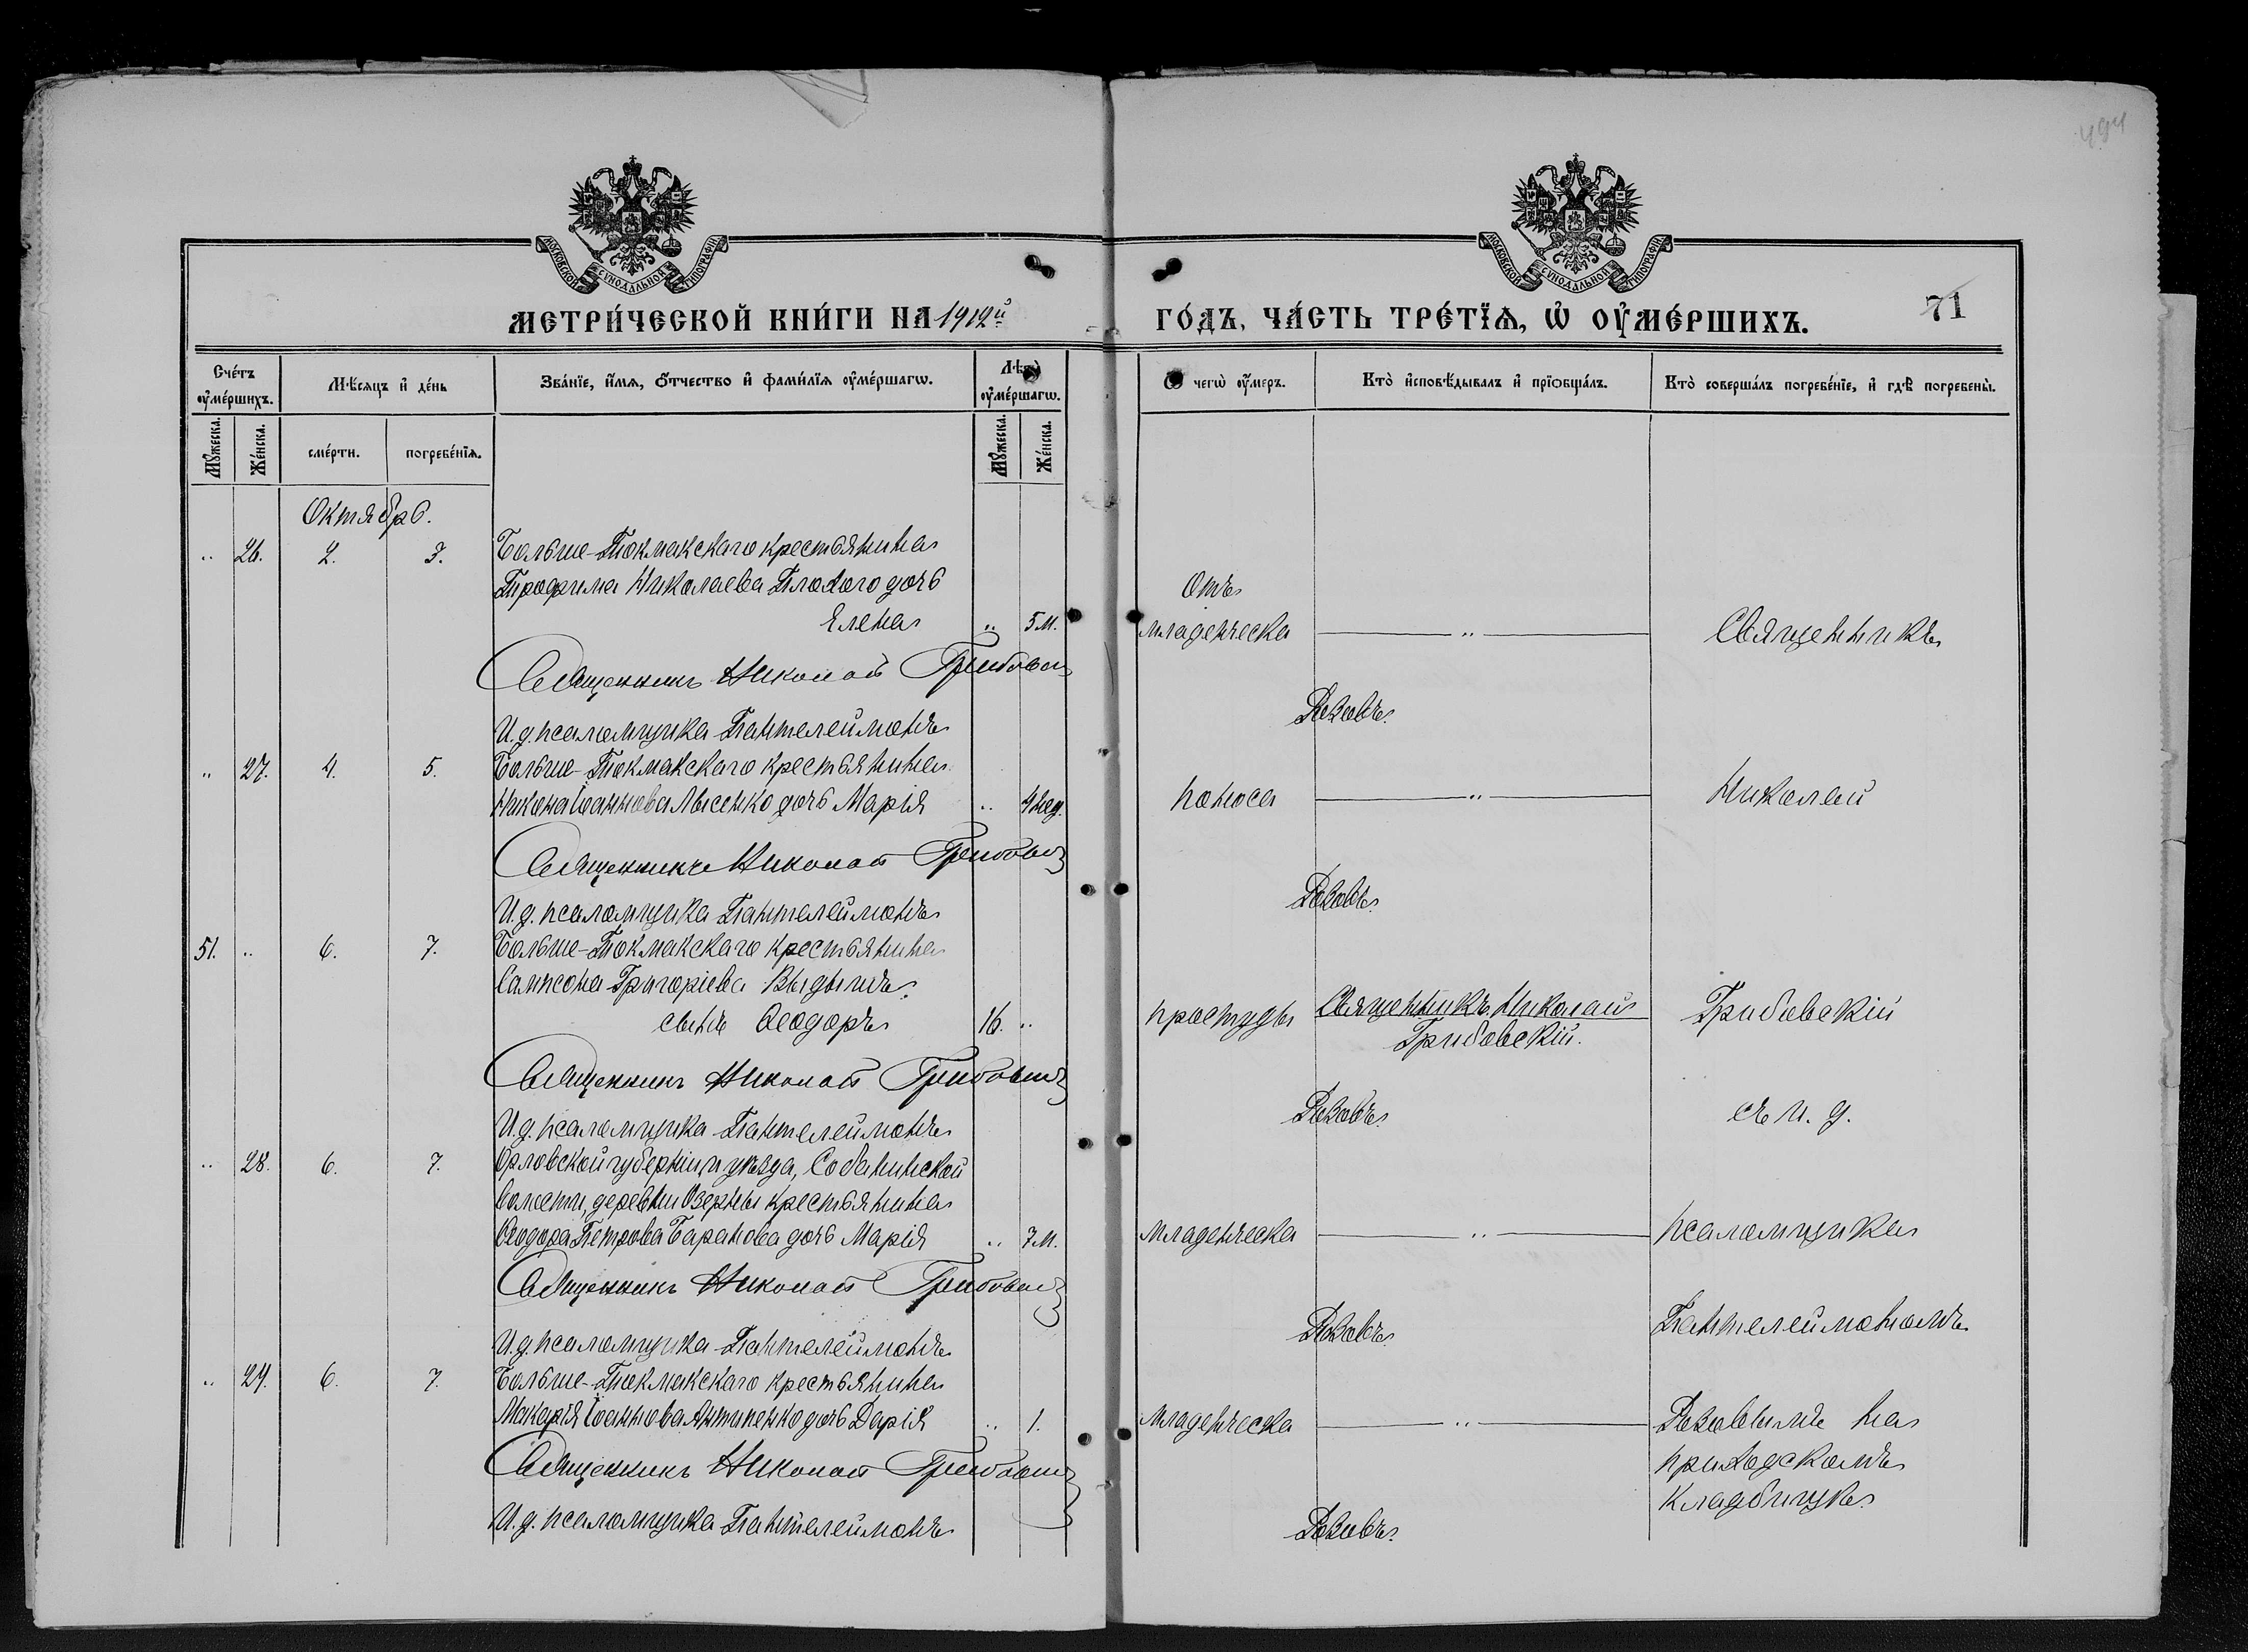 494
МОСКОВСКОЙ СѴНОДАЛЬНОЙ ТИПОГРАФІИ
МОСКОВСКОЙ СѴНОДАЛЬНОЙ ТИПОГРАФІИ
МЕТРИ́ЧЕСКОЙ КНИ́ГИ НА 1912й
ГО́ДЪ, ЧА́СТЬ ТРЕ́ТЇѦ, Ѡ҆ ОУ҆МЕ́РШИХЪ.
71
Сче́тъ оу҆ме́ршихъ.
Мѣ́сяцъ и҆ де́нь
Зва́нїе, и҆́мѧ, ѻ҆́тчество и҆ фами́лїѧ оу҆ме́ршагѡ.
Лѣ́та оу҆ме́ршагѡ.
Ѿ чегѡ̀ оу҆́меръ.
Кто̀ и҆сповѣ́дывалъ и҆ прїѡбща́лъ.
Кто̀ соверша́лъ погребе́нїе, и҆ гдѣ̀ погребены̀.
Мꙋ́жеска.
Же́нска.
сме́рти.
погребе́нїѧ.
Мꙋ́жеска.
Же́нска.
Октябрь.
" 26. 2. 3. Больше-Токмакскаго крестьянина
Трофима Николаева Плохого дочь
Елена " 5 м.
Отъ
младенческа — " — Священникъ
Священникъ Николай Грибовскій
И. д. псаломщика Пантелеймонъ Розовъ.
" 27. 4. 5. Больше-Токмакскаго крестьянина
Никона Іоаннова Лысенко дочь Марія " 4 нед. поноса — " — Николай
Священникъ Николай Грибовскій
И. д. псаломщика Пантелеймонъ Розовъ.
51. " 6. 7. Больше-Токмакскаго крестьянина
Сампсона Григоріева
сынъ Ѳеодоръ 16. " простуды Священникъ Николай Грибовскій. Грибовскій
Священникъ Николай Грибовскій
И. д. псаломщика Пантелеймонъ Розовъ. съ и. д.
" 28. 6. 7. Орловской губерніи и уѣзда, Собакинской
волости, деревни Озерны крестьянина
Ѳеодора Петрова Баранова дочь Марія " 7 м. младенческа — " — псаломщика
Священникъ Николай Грибовскій
И. д. псаломщика Пантелеймонъ Розовъ. Пантелеймономъ
" 29. 6. 7. Больше-Токмакскаго крестьянина
Макарія Іоаннова Антипенко дочь Дарія " 1. младенческа — " — Розовымъ на
Священникъ Николай Грибовскій приходскомъ
кладбищѣ.
И. д. псаломщика Пантелеймонъ Розовъ.